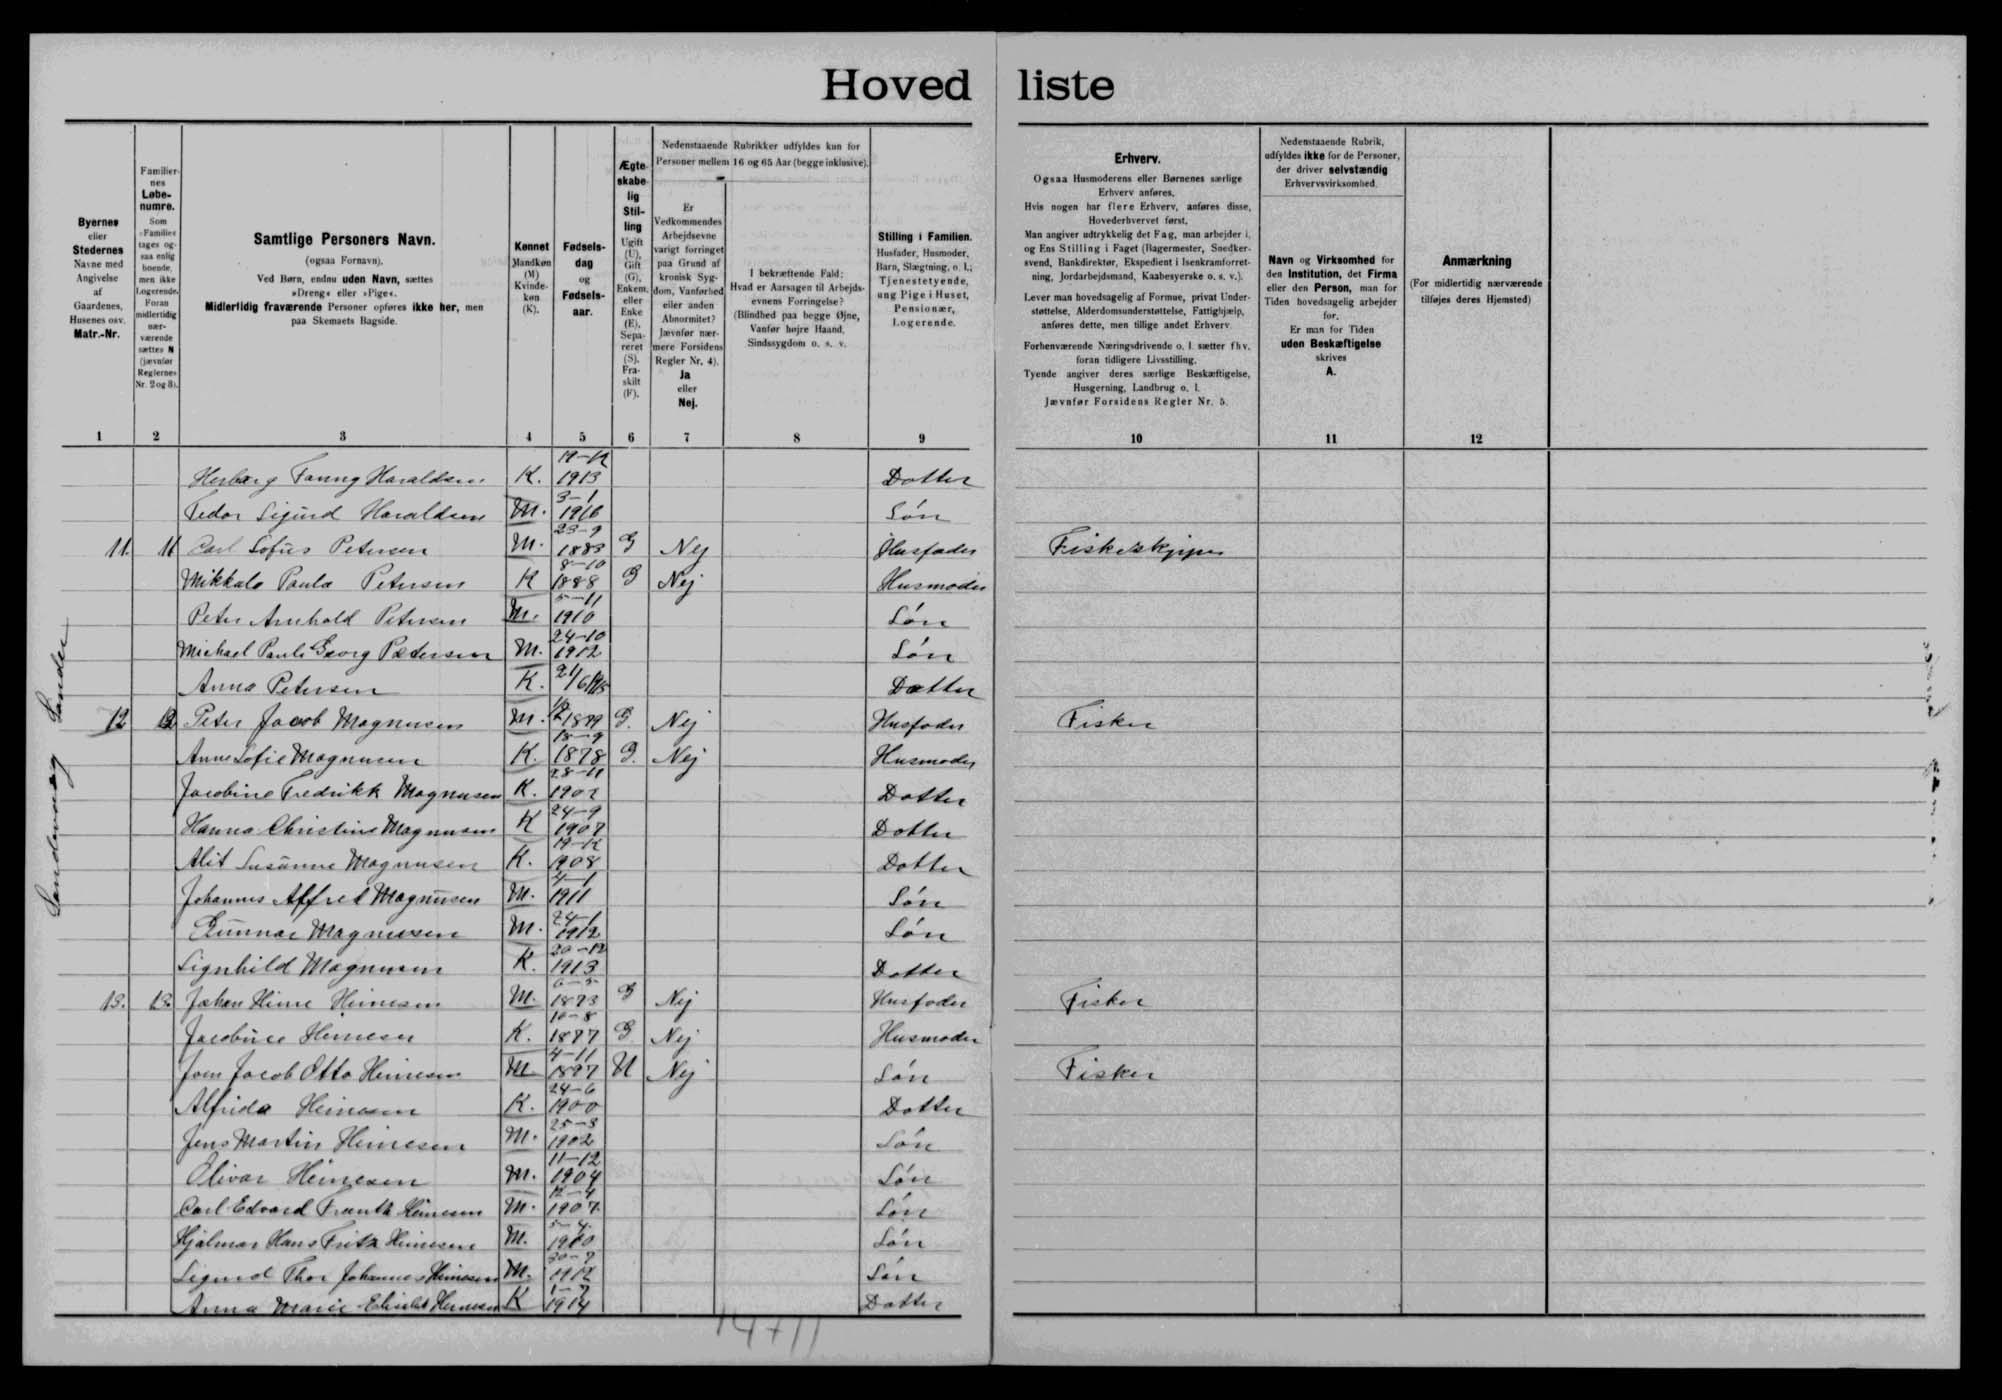 Hovedliste
Byernes eller Stedernes Navne med Angivelse af Gaardenes, Husenes osv. Matr.-Nr.
Familiernes Løbenumre. Som »Familie« tages ogsaa enlig boende, men ikke Logerende. Foran midlertidig nærværende sættes N (jævnfør Reglernes Nr. 2 og 3).
Samtlige Personers Navn. (ogsaa Fornavn). Ved Børn, endnu uden Navn, sættes »Dreng« eller »Pige«. Midlertidig fraværende Personer opføres ikke her, men paa Skemaets Bagside.
Kønnet Mandkøn (M) Kvindekøn (K).
Fødselsdag og Fødselsaar.
Ægteskabelig Stilling Ugift (U), Gift (G), Enkem. eller Enke (E), Separeret (S), Fraskilt (F).
Nedenstaaende Rubrikker udfyldes kun for Personer mellem 16 og 65 Aar (begge inklusive).
Er Vedkommendes Arbejdsevne varigt forringet paa Grund af kronisk Sygdom, Vanførhed eller anden Abnormitet? Jævnfør nærmere Forsidens Regler Nr. 4). Ja eller Nej.
I bekræftende Fald: Hvad er Aarsagen til Arbejdsevnens Forringelse? (Blindhed paa begge Øjne, Vanfør højre Haand, Sindssygdom o. s. v.
Stilling i Familien. Husfader, Husmoder, Barn, Slægtning, o. l.; Tjenestetyende, ung Pige i Huset, Pensionær, Logerende.
Erhverv.
Ogsaa Husmoderens eller Børnenes særlige Erhverv anføres.
Hvis nogen har flere Erhverv, anføres disse, Hovederhvervet først.
Man angiver udtrykkelig det Fag, man arbejder i, og Ens Stilling i Faget (Bagermester, Snedkersvend, Bankdirektør, Ekspedient i Isenkramforretning, Jordarbejdsmand, Kaabesyerske o. s. v.).
Lever man hovedsagelig af Formue, privat Understøttelse, Alderdomsunderstøttelse, Fattighjælp, anføres dette, men tillige andet Erhverv.
Forhenværende Næringsdrivende o. l. sætter fhv. foran tidligere Livsstilling.
Tyende angiver deres særlige Beskæftigelse, Husgerning, Landbrug o. l.
Jævnfør Forsidens Regler Nr. 5.
Nedenstaaende Rubrik, udfyldes ikke for de Personer, der driver selvstændig Erhvervsvirksomhed.
Navn og Virksomhed for den Institution, det Firma eller den Person, man for Tiden hovedsagelig arbejder for.
Er man for Tiden uden Beskæftigelse skrives A.
Anmærkning (For midlertidig nærværende tilføjes deres Hjemsted)
1 2 3 4 5 6 7 8 9 10 11 12
Fanny Haraldsen K. 1913 Datter
Sigurd Haraldsen M. 3-1 1916 Søn
11. 11 Carl Sofus Petersen M. 23-9 1883 G Nej Husfader Fiskeskipper
Mikkala Paula Petersen K 8-10 1888 G Nej Husmoder
Peter Arnhold Petersen M. 5-11 1910 Søn
Michael Pauli Georg Petersen M. 24-10 1912 Søn
Anna Petersen K. 21/6 1915 Datter
12 12 Peter Jacob Magnusen M. G. Nej Husfader Fisker
Anne Sofie Magnusen K. 18-9 1878 G. Nej Husmoder
Jacobine Fredrikk Magnusen K. 28-11 Datter
Hanna Christine Magnusen K 24-9 1907 Datter
Alit Susanne Magnusen K. 19-12 1908 Datter
Johannes Alfred Magnusen M. 4-1 1911 Søn
Gunnar Magnusen M. 24-1 1912 Søn
Signhild Magnusen K. 20-12 1913 Datter
13. 13. Johan Heine Heinesen M. 1873 G Nej Husfader Fisker
Jacobine Heinesen K. 10-8 1877 G Nej Husmoder
Jacob Otto Heinesen M 4-11 1897 U Nej Søn Fisker
Alfrida Heinesen K. 24-6 1900 Datter
Jens Martin Heinesen M. 25-3 1902 Søn
Olivar Heinesen M. 11-12 1904 Søn
Carl Edvard Frantz Heinesen M. 12-4 1907. Søn
Hjalmar Hans Fritz Heinesen M. 5-4. 1910 Søn
Sigurd Thor Johannes Heinesen M. 1912 Søn
Anna Marie Heinesen K 1-7 1914 Datter
Sandevaag Sander
14+11